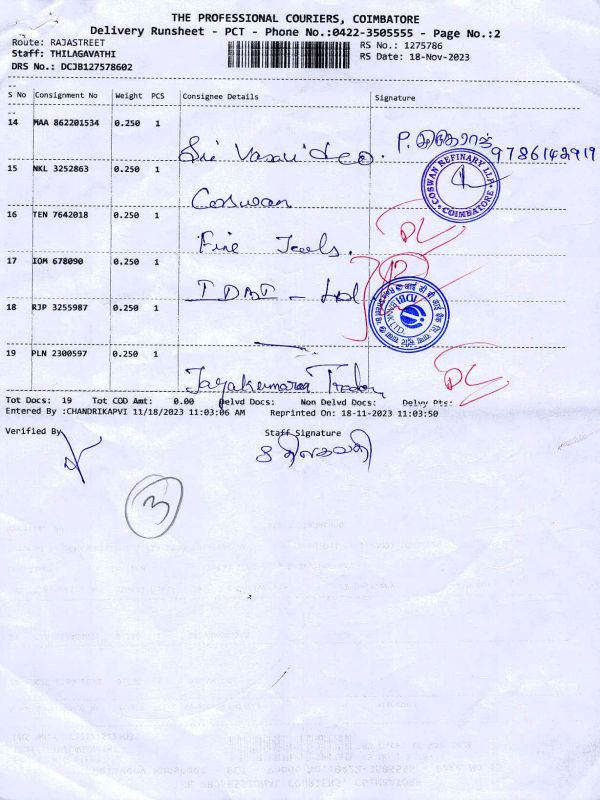 THE PROFESSIONAL COURIERS, COIMBATORE
Delivery Runsheet - PCT - Phone No.:0422-3505555 - Page No.:2
Route: RAJASTREET
RS No.: 1275786
Staff: THILAGAVATHI
RS Date: 18-Nov-2023
DRS No.: DCJB127578602
S No Consignment No Weight PCS Consignee Details Signature
14 MAA 862201534 0.250 1
Sri Vasavi & Co. 9786142919
15 NKL 3252863 0.250 1
Coswan
COSWAN REFINARY LLP. COIMBATORE
16 TEN 7642018 0.250 1
Fine Jewels. DL
17 IOM 678090 0.250 1
IDBI - Ltd
18 RJP 3255987 0.250 1
19 PLN 2300597 0.250 1
Jayakumaraa DL
Tot Docs: 19 Tot COD Amt: 0.00 Delvd Docs: Non Delvd Docs: Delvy Pts:
Entered By :CHANDRIKAPVI 11/18/2023 11:03:06 AM Reprinted On: 18-11-2023 11:03:50
Verified By
Staff Signature
திலகவதி
3